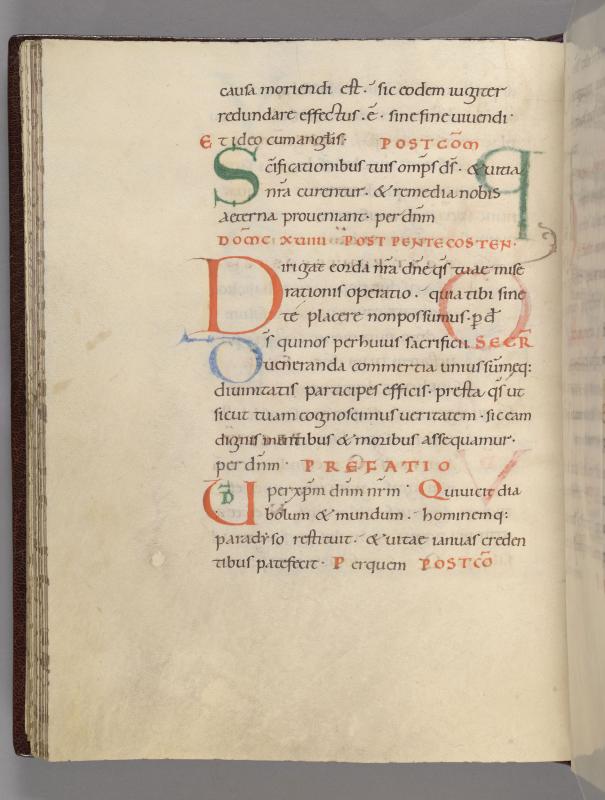 causa moriendi est. sic eodem iugiter
redundare effectus. ē. sine fine uiuendi.
Et ideo cum anglis. POSTCŌM
Sc̄ificationibus tuis omp̄s d̄s. & uitia
nr̄a curentur. & remedia nobis
aeterna proueniant. per dn̄m
DOM̄C XVIIII POST PENTECOSTEN.
Dirigat corda nr̄a dn̄e q̄s tuae mise
rationis operatio. quia tibi sine
te placere non possumus. p̄ d̄
Ds̄ qui nos per huius sacrificii SECR̄
ueneranda commertia unius sūmeq:
diuinitatis participes efficis. presta q̄s ut
sicut tuam cognoscimus ueritatem. sic eam
dignis mentibus & moribus assequamur.
per dn̄m. PREFATIO
VD per xp̄m dn̄m nr̄m. Qui uicit dia
bolum & mundum. hominemq:
paradyso restituit. & uitae ianuas creden
tibus patefecit. Per quem POSTCŌ